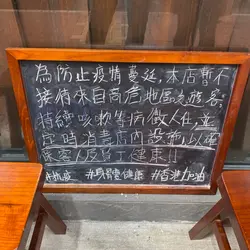 為防止疫情蔓延,本店暫不
接待來自高危地區之遊客,
持續咳嗽等病徵人住,並
定時消毒店內設施,以確
保客人及員工健康!!
#抗疫 #身體健康 #香港加油